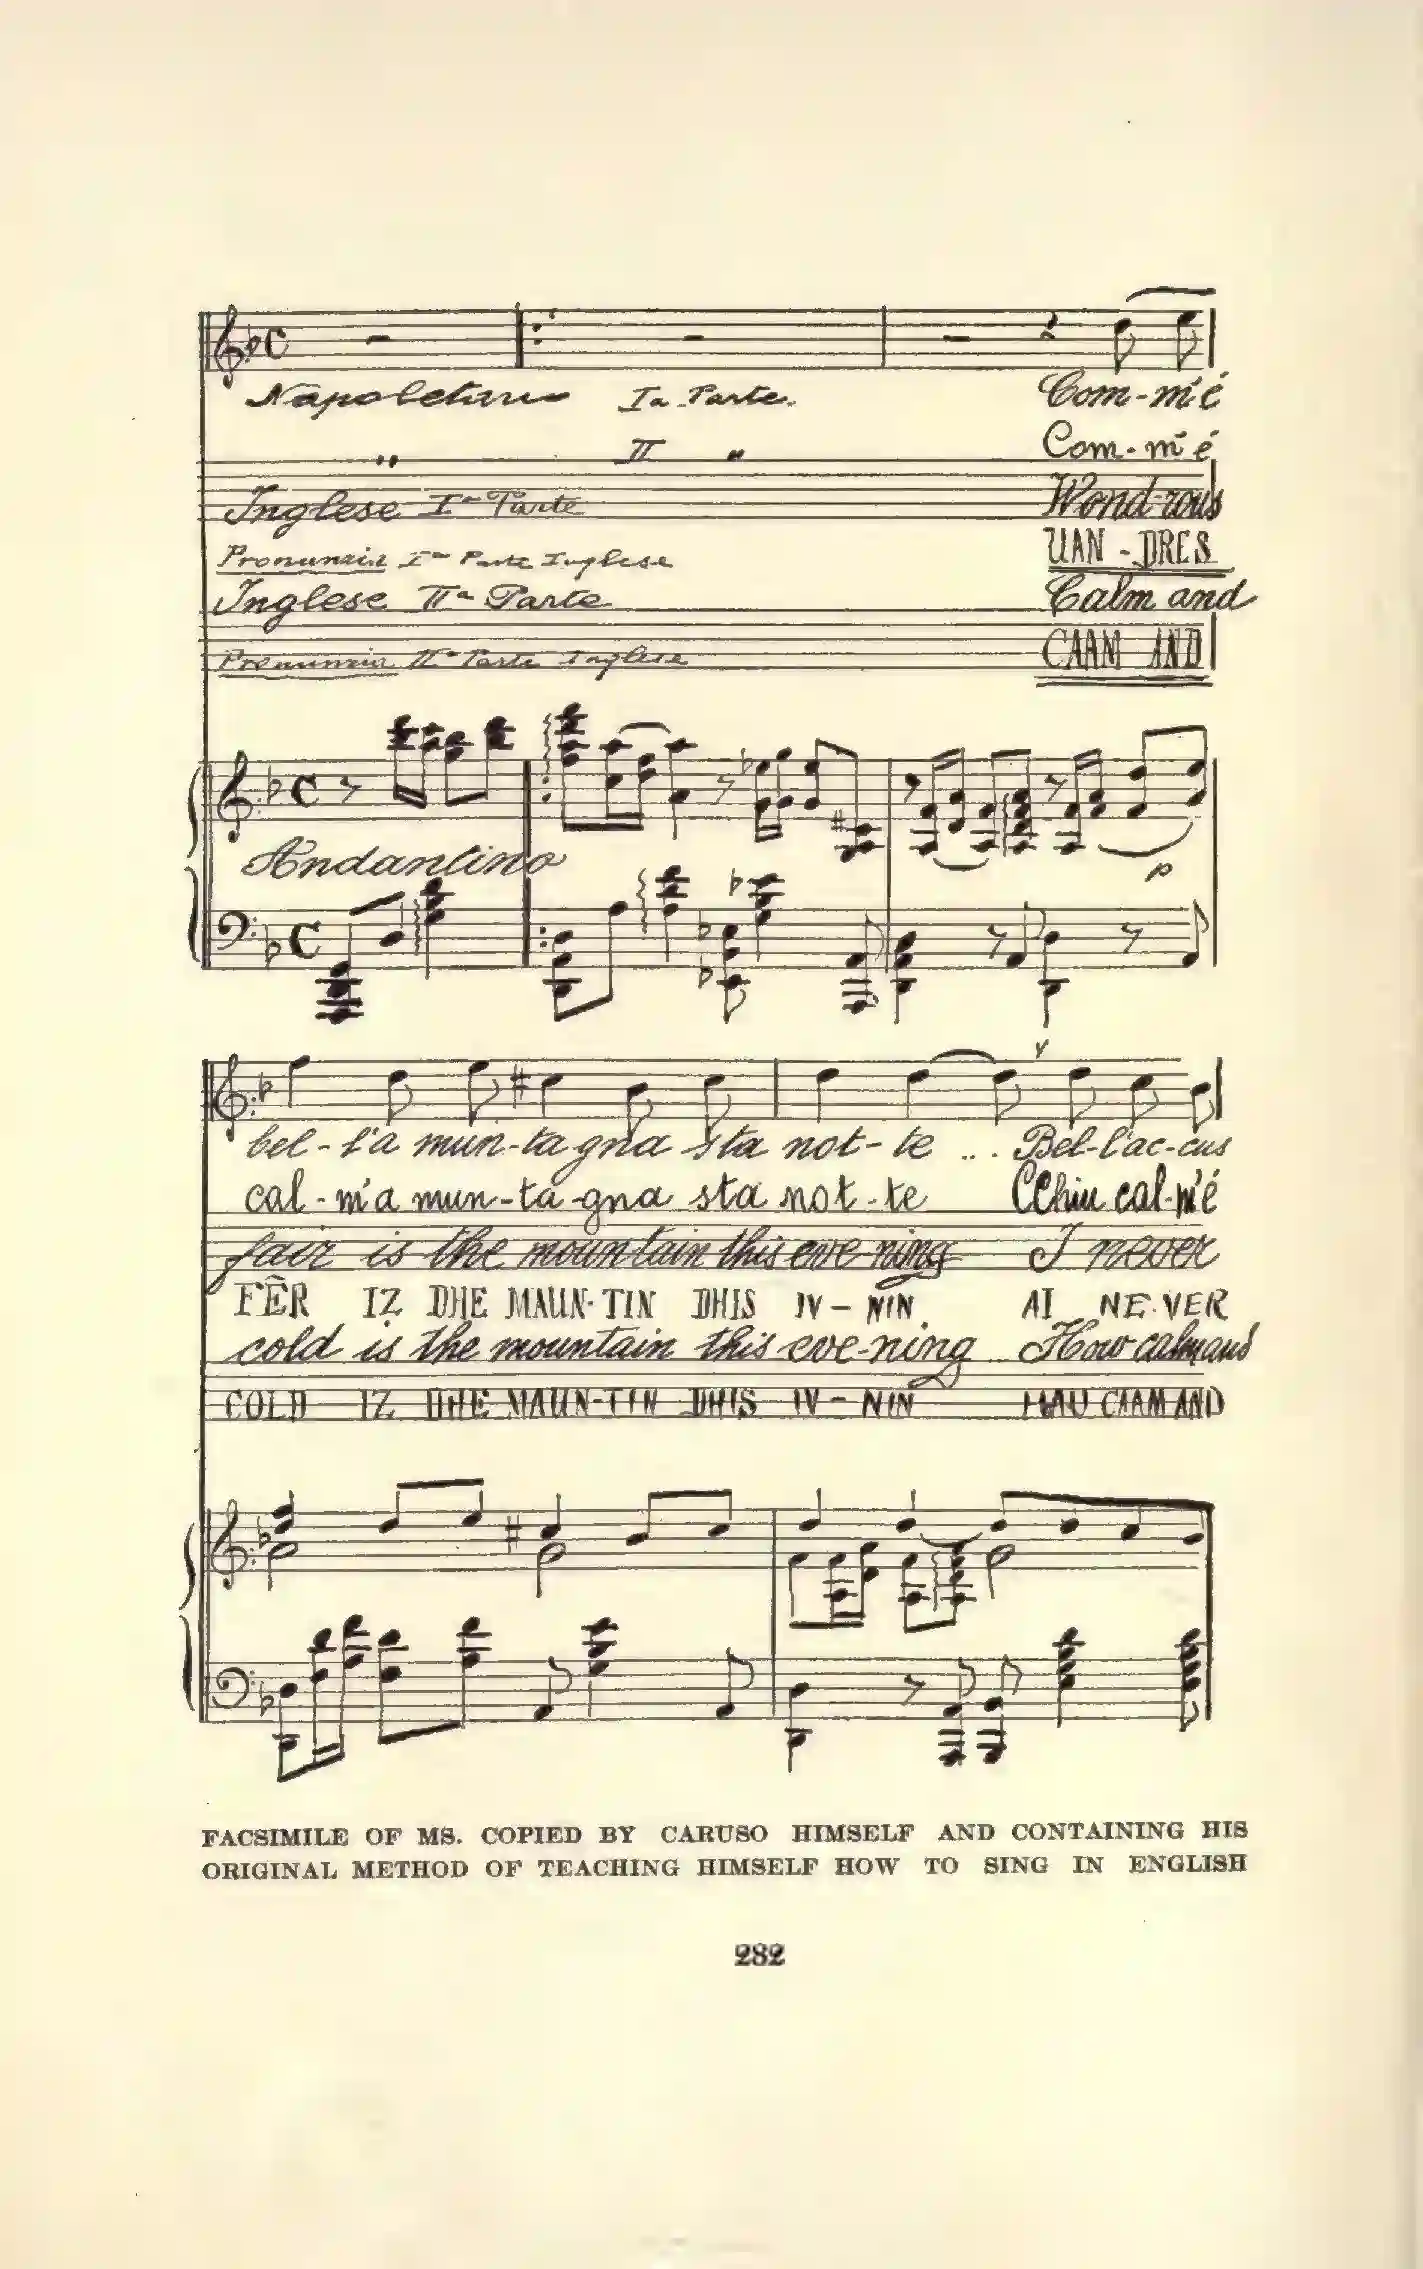 Napoletano Ia Parte. Com-m'é
" II " Com-m'é
Inglese Ia Parte Wond-rous
Pronunzia Ia Parte Inglese UAN-DRES
Inglese IIa Parte Calm and
Pronunzia IIa Parte Inglese CAAM AND
Andantino
p
bel-l'a mun-ta gna sta not-te ... Bel-l'ac-cus
cal-m'a mun-ta-gna sta not-te CChiu cal-m'é
fair is the mountain this eve-ning I never
FĒR IZ DHE MAUN-TIN DHIS IV-NIN. AI NE-VER
cold is the mountain this eve-ning How calm and
COLD IZ DHE MAUN-TIN DHIS IV-NIN HAU CAAM AND
FACSIMILE OF MS. COPIED BY CARUSO HIMSELF AND CONTAINING HIS
ORIGINAL METHOD OF TEACHING HIMSELF HOW TO SING IN ENGLISH
282